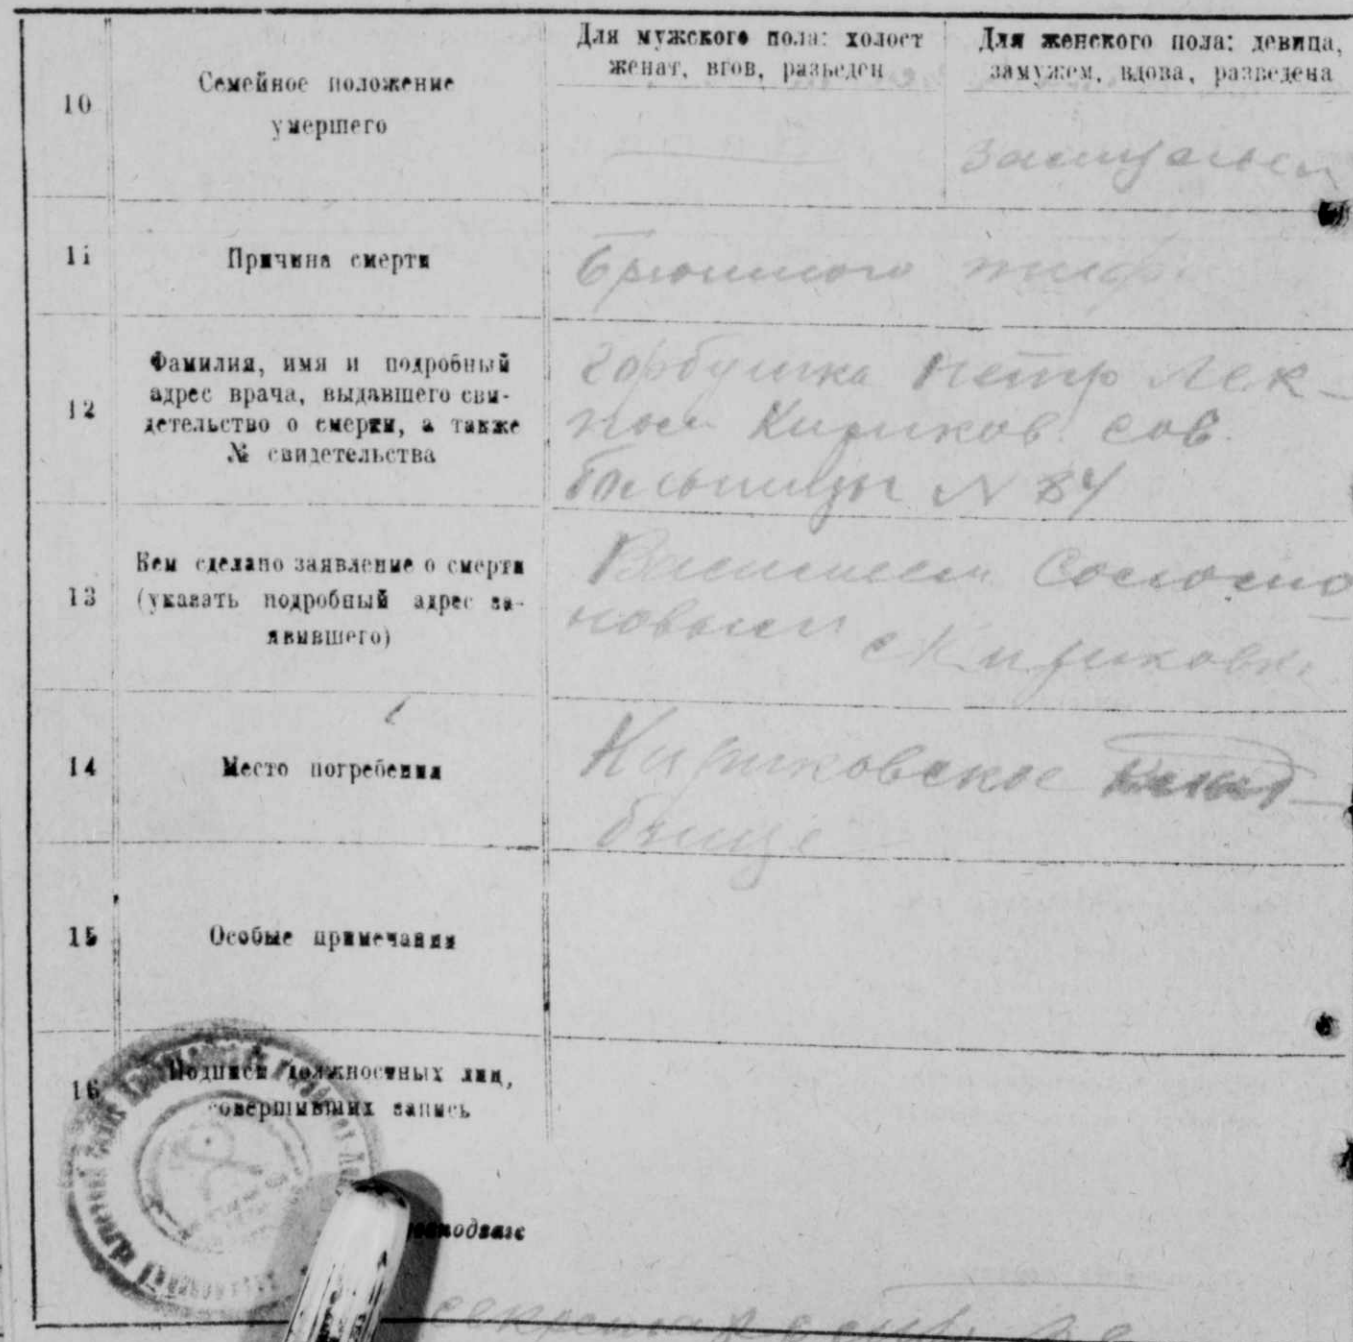 10
Семейное положение
умершего
Для мужского пола: холост
женат, вдов, разведен
Для женского пола: девица,
замужем, вдова, разведена
замужем
11
Причина смерти
Брюшного тиф
12
Фамилия, имя и подробный
адрес врача, выдавшего сви-
детельство о смерти, а также
№ свидетельства
Горбушка Петр Лек-
Кириков. сов.
больницы N 84
13
Кем сделано заявление о смерти
(указать подробный адрес за-
явившего)
Василием Соломо
новым с Кириковка
14
Место погребения
Кириковское клад-
бище
15
Особые примечания
16
Подписи должностных лиц,
совершивших запись